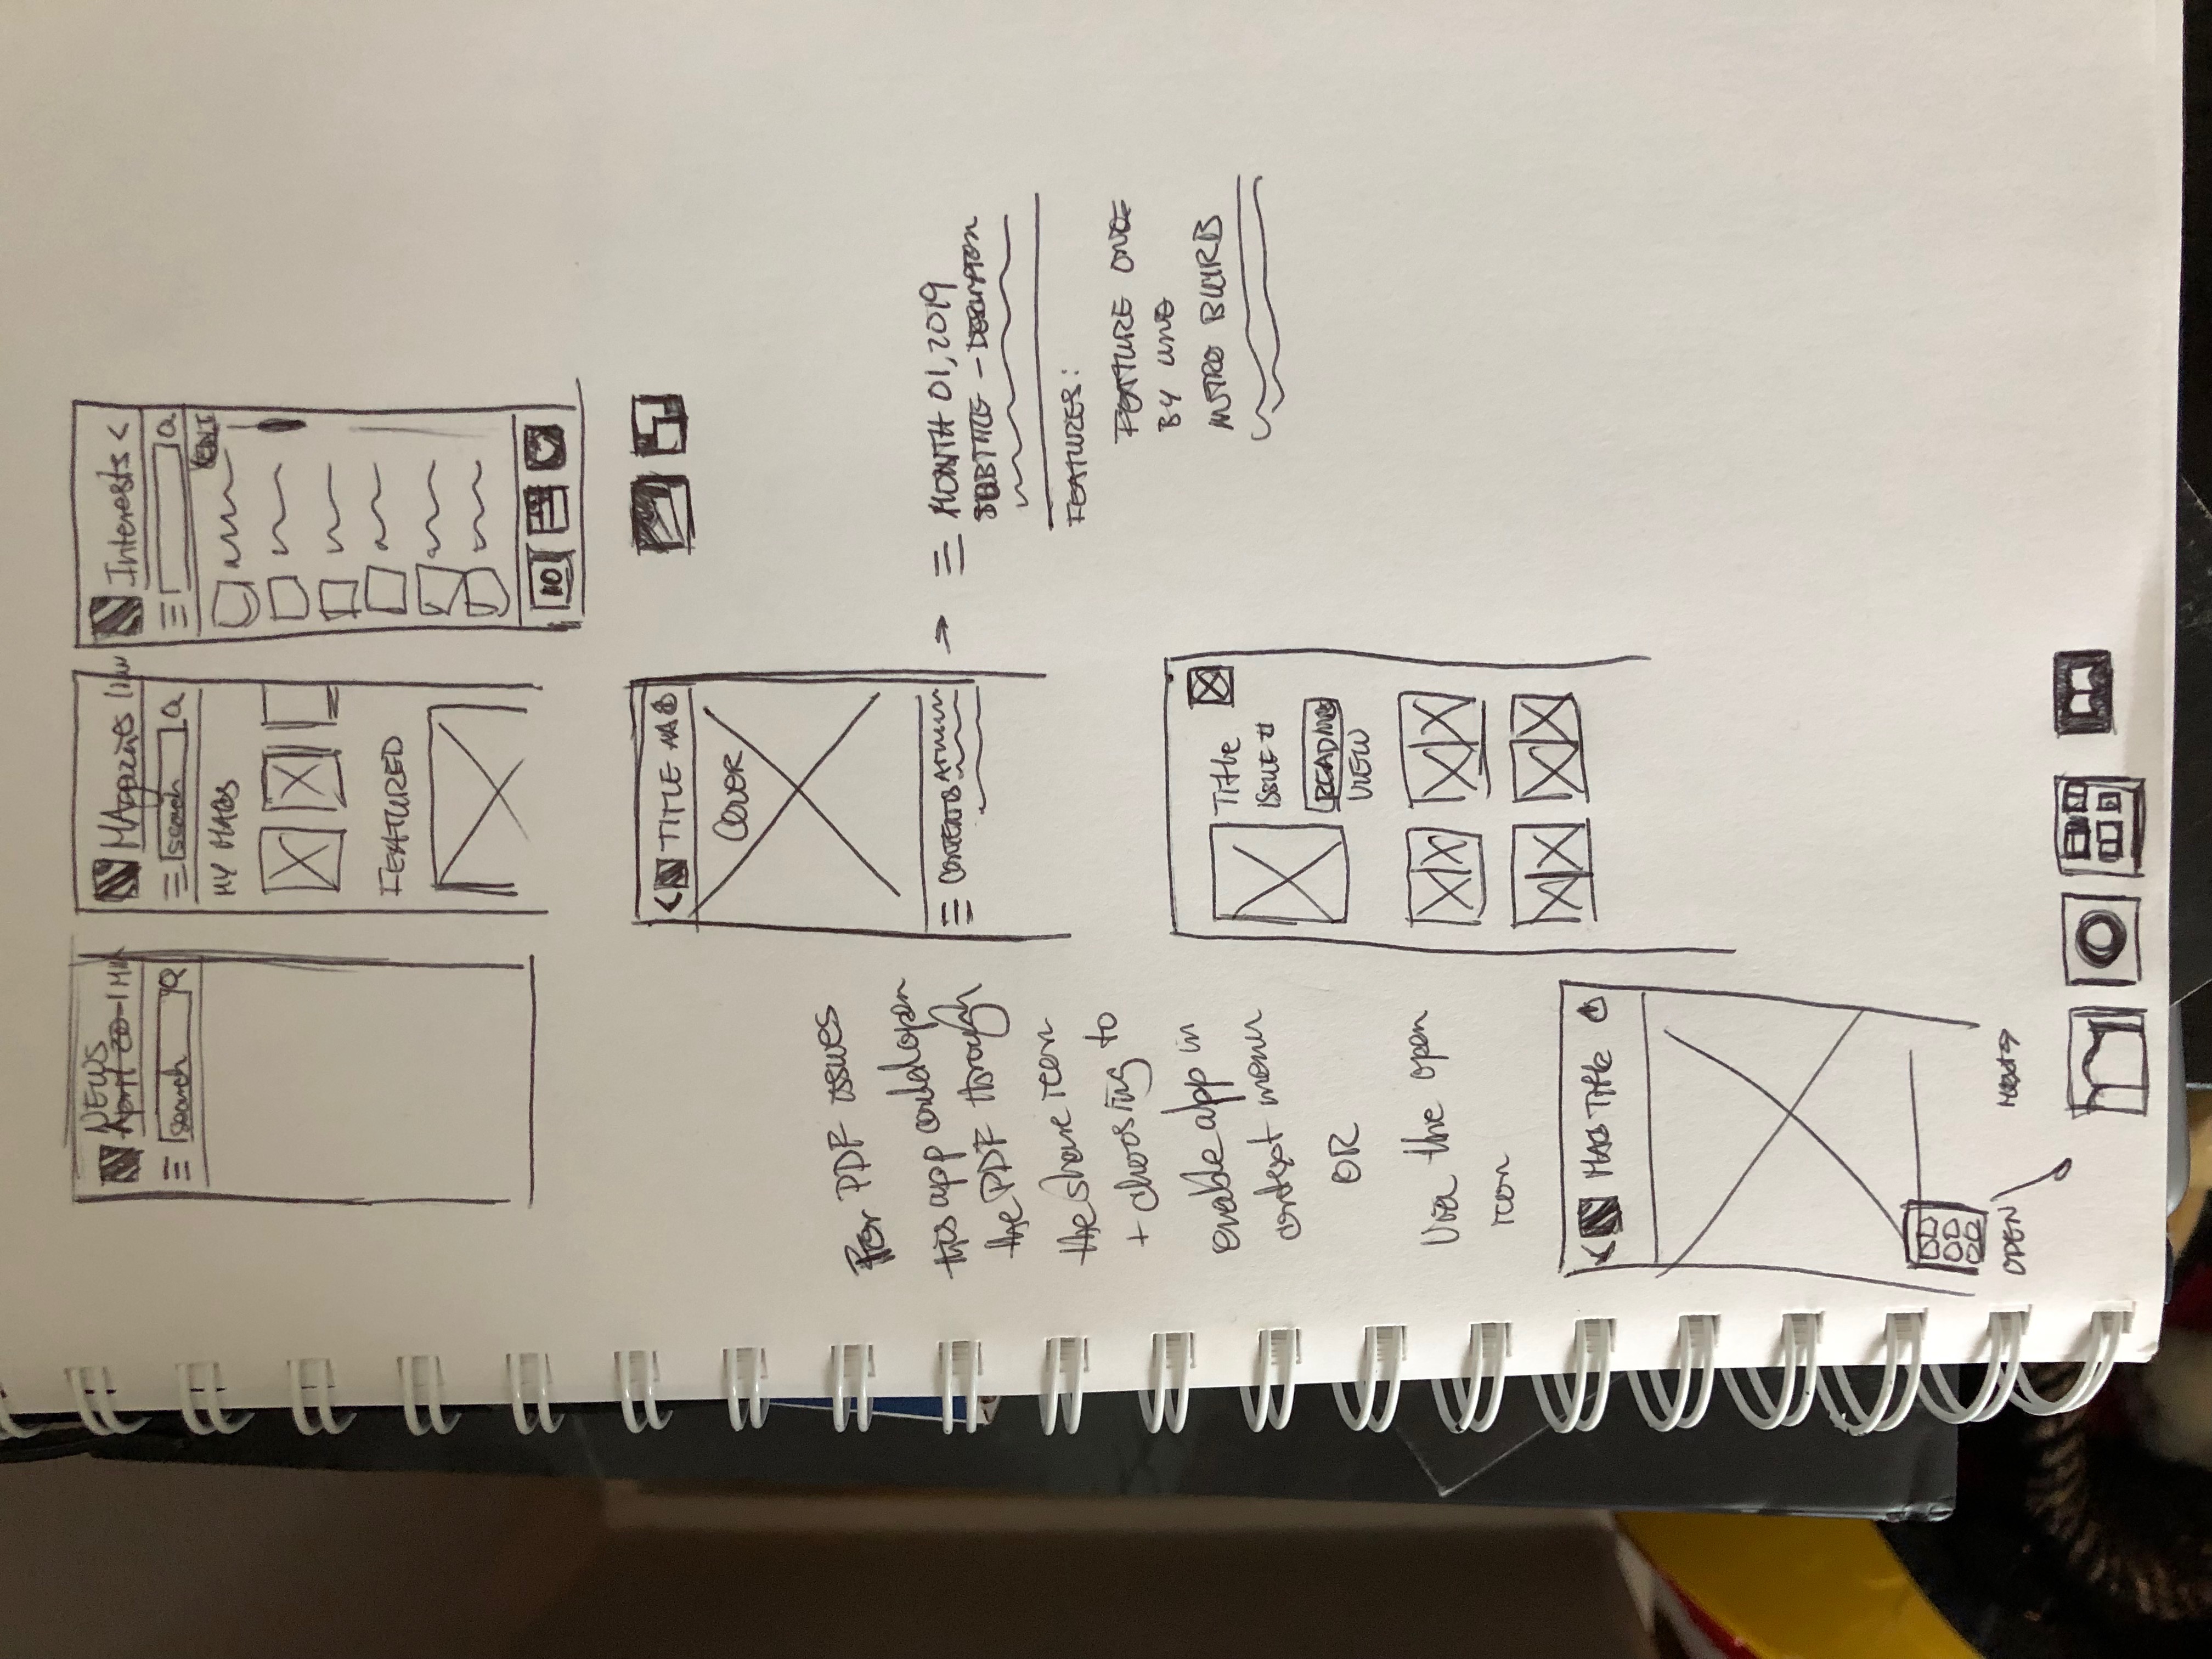 NEWS
April 20
search
MAgazines
search
MY MAGS
FEATURED
Interests <
EDIT
10
< TITLE AA
COVER
CONTENTS
MONTH 01, 2019
SUBTITLE - DESCRIPTION
FEATURES:
FEATURE ONE
BY LINE
INTRO BLURB
For PDF issues
this app could open
the PDF through
the share icon
+ choosing to
enable app in
context menu
OR
Via the open
icon
Title
ISSUE #
READING
VIEW
< MAG TITLE
OPEN